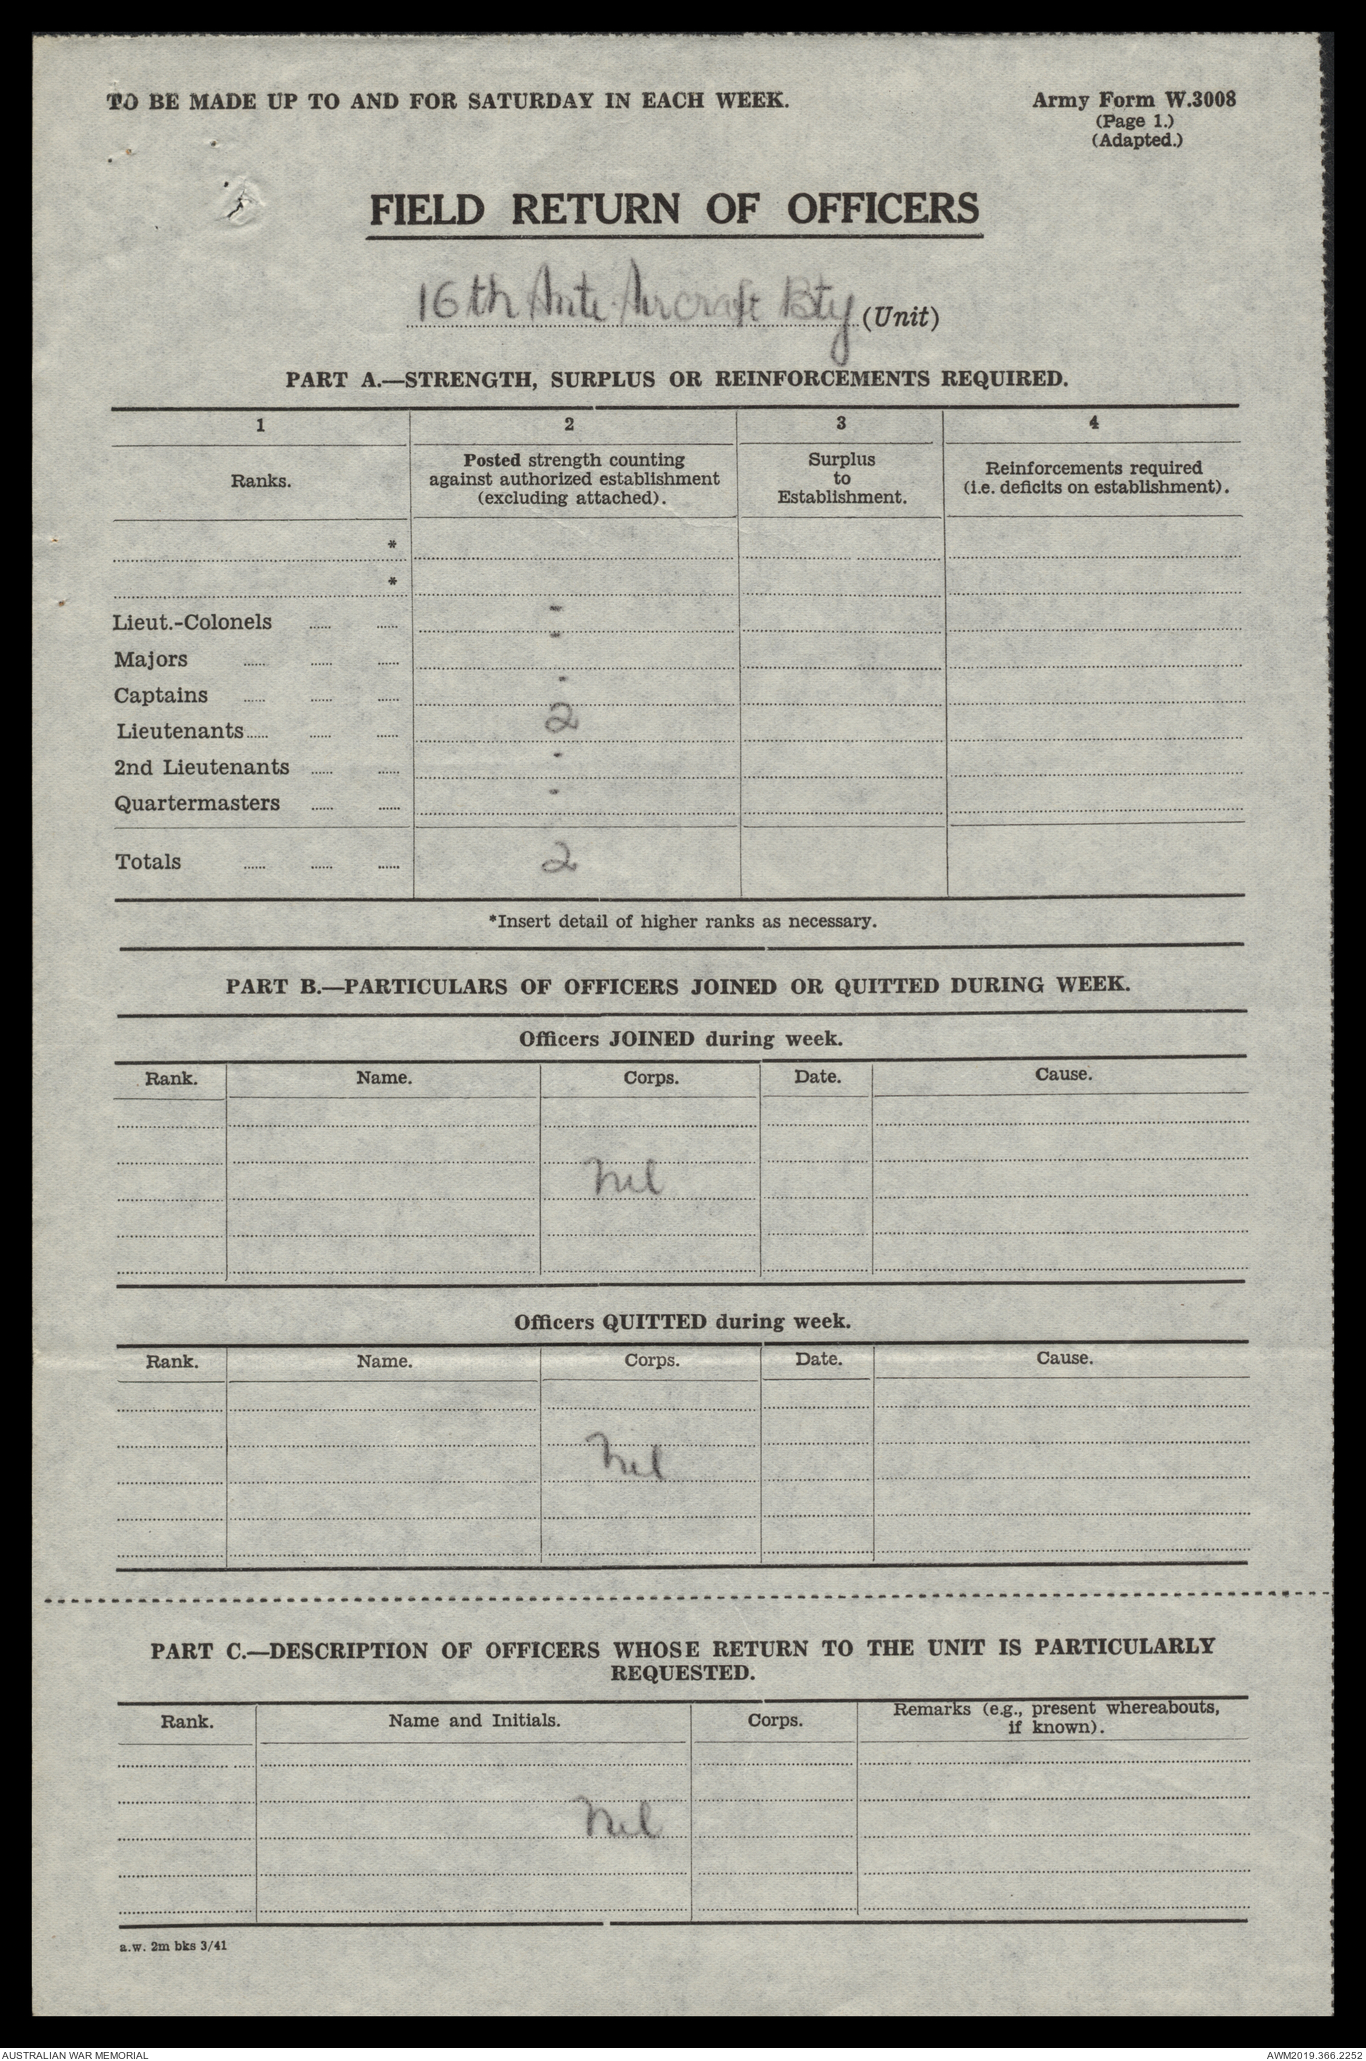 TO BE MADE UP TO AND FOR SATURDAY IN EACH WEEK.
Army Form W.3008
(Page 1.)
(Adapted.)
FIELD RETURN OF OFFICERS
16th Anti-Aircraft Bty (Unit)
PART A.—STRENGTH, SURPLUS OR REINFORCEMENTS REQUIRED.
1 2 3 4
Ranks.
Posted strength counting
against authorized establishment
(excluding attached).
Surplus
to
Establishment.
Reinforcements required
(i.e. deficits on establishment).
*
*
Lieut.-Colonels ...... ...... -
Majors ...... ...... ...... -
Captains ...... ...... ...... -
Lieutenants...... ...... ...... 2
2nd Lieutenants ...... ...... -
Quartermasters ...... ...... -
Totals ...... ...... ...... 2
*Insert detail of higher ranks as necessary.
PART B.—PARTICULARS OF OFFICERS JOINED OR QUITTED DURING WEEK.
Officers JOINED during week.
Rank. Name. Corps. Date. Cause.
Nil
Officers QUITTED during week.
Rank. Name. Corps. Date. Cause.
Nil
PART C.—DESCRIPTION OF OFFICERS WHOSE RETURN TO THE UNIT IS PARTICULARLY
REQUESTED.
Rank. Name and Initials. Corps.
Remarks (e.g., present whereabouts,
if known).
Nil
a.w. 2m bks 3/41
AUSTRALIAN WAR MEMORIAL
AWM2019.366.2252